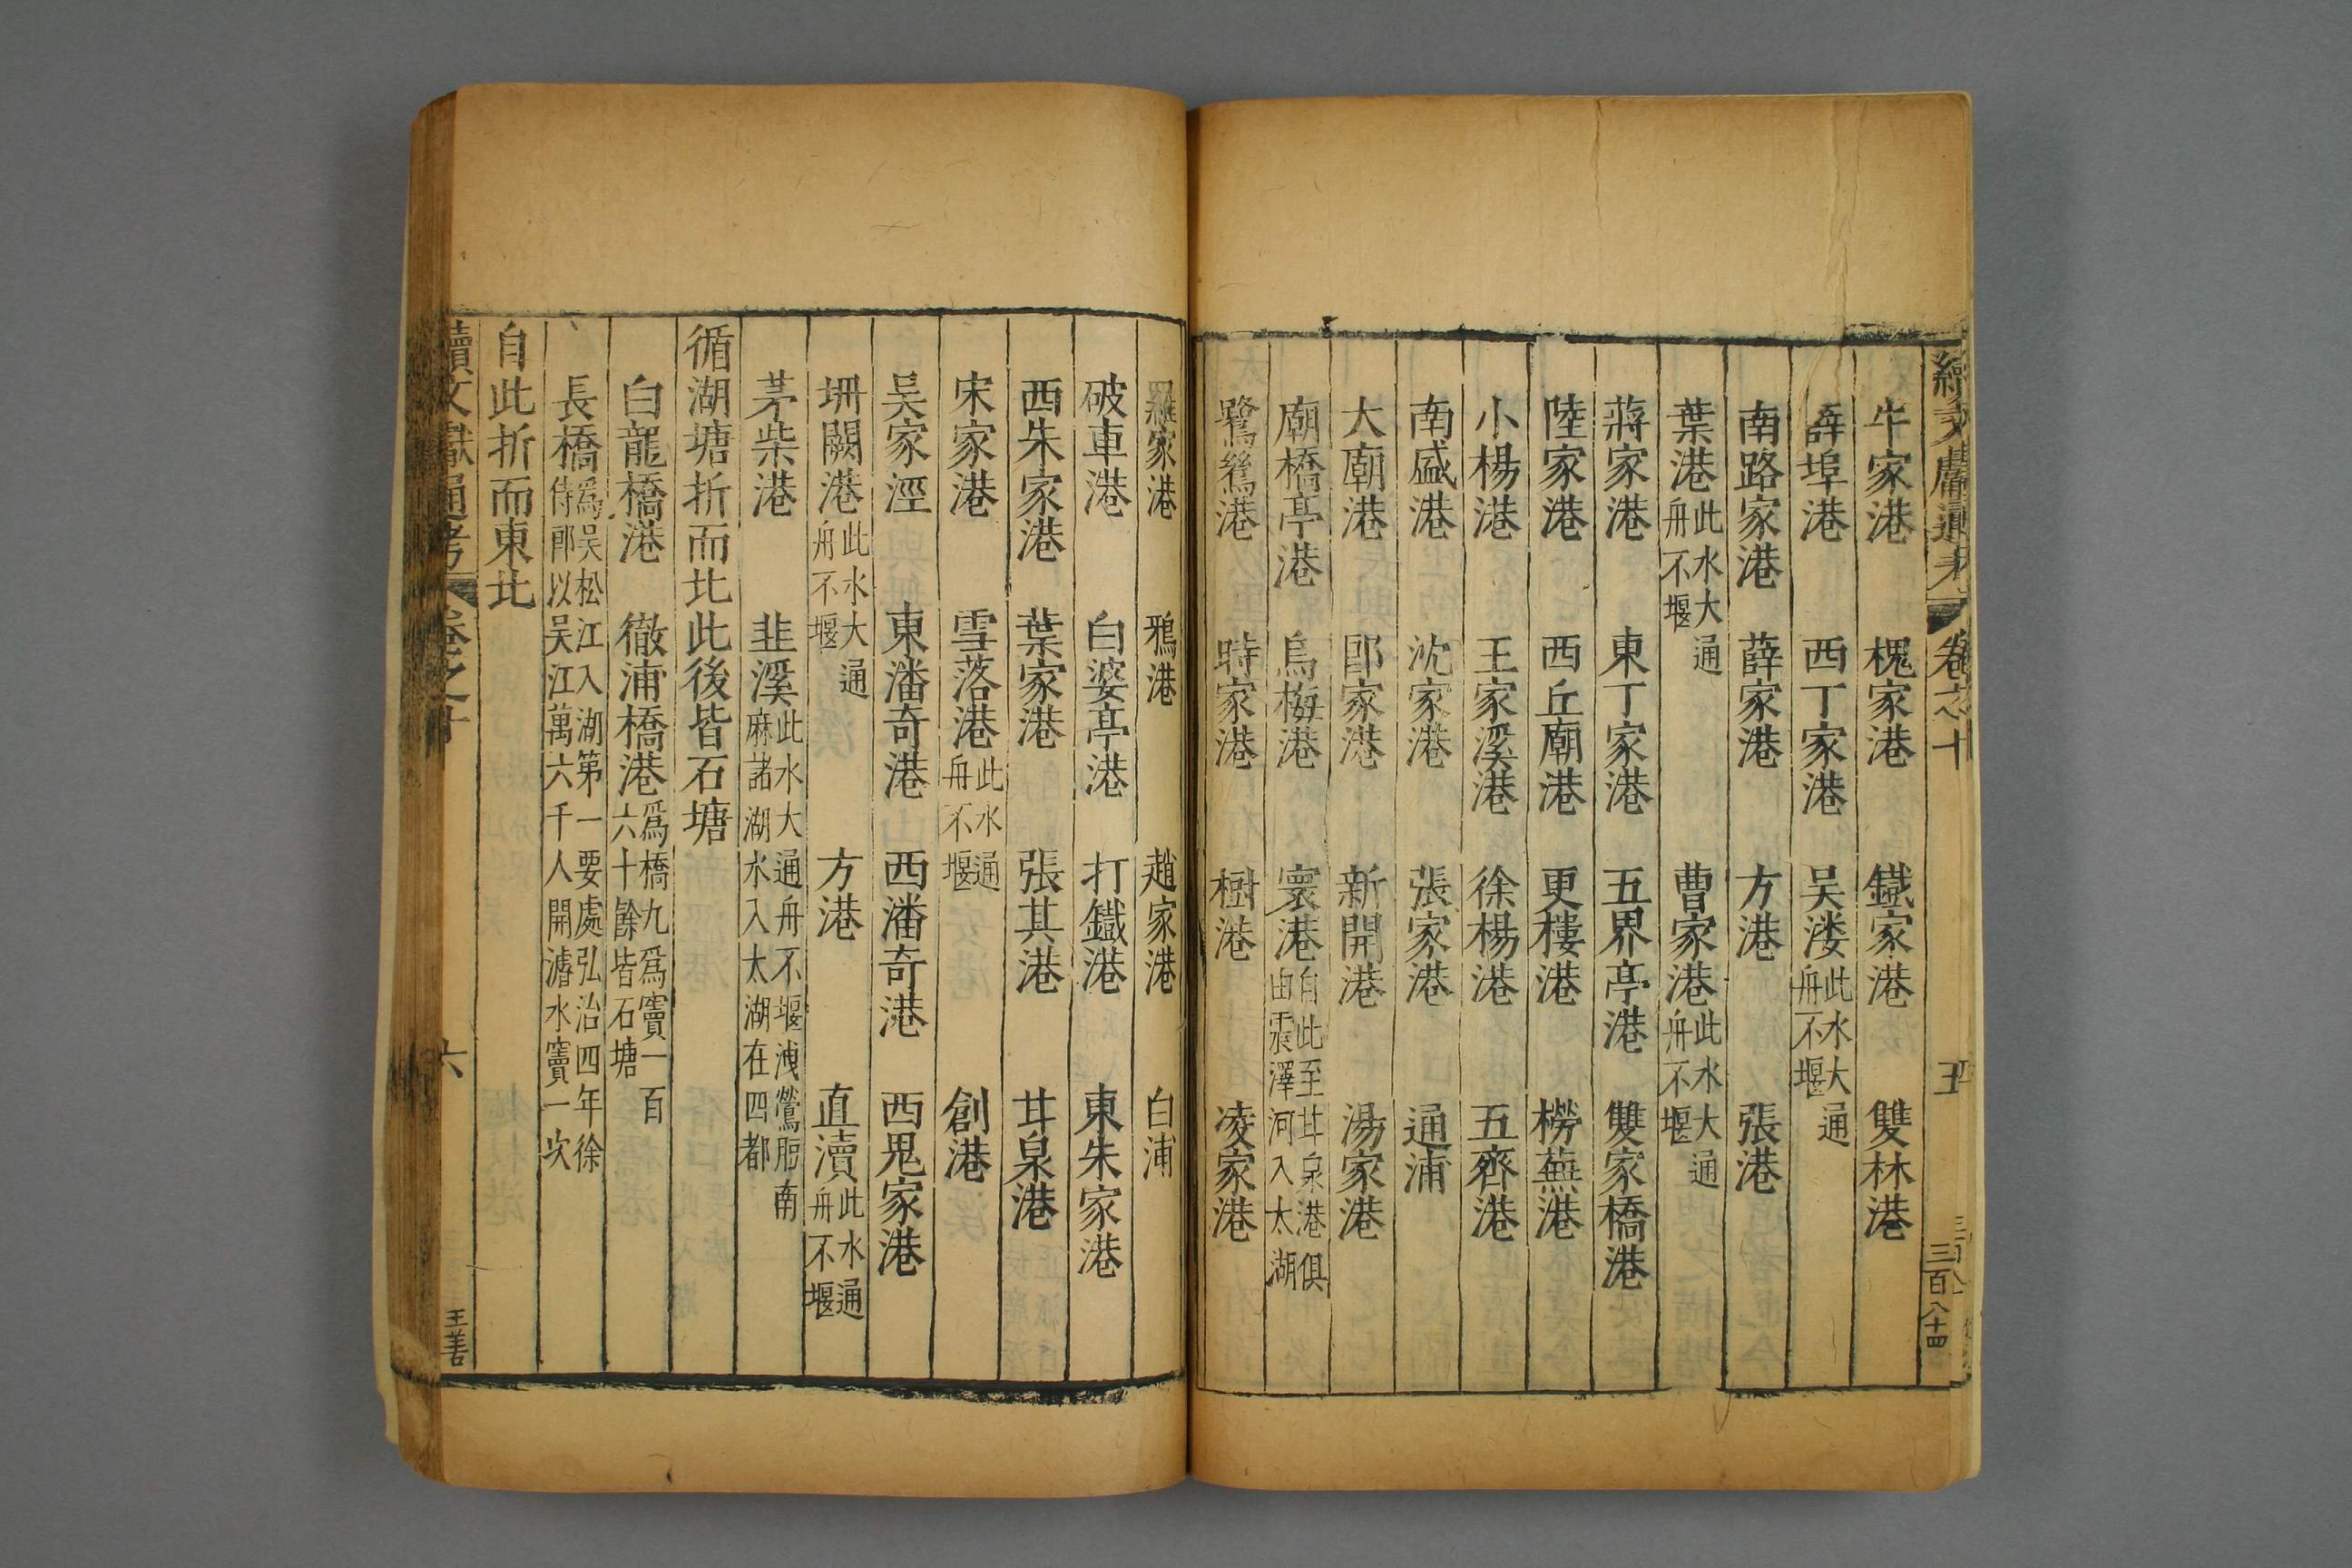 續文獻通考 卷之十 五 三百八十四
牛家港 槐家港 鐵家港 雙林港
薛埠港 西丁家港 吴溇港 此水大通舟不堰
南路家港 薛家港 方港 張港
葉港 此水大通舟不堰 曹家港 此水大通舟不堰
蔣家港 東丁家港 五界亭港 雙家橋港
陸家港 西丘廟港 更樓港 楞蕪港
小楊港 王家溪港 徐楊港 五齊港
南盛港 沈家港 張家港 通浦
大廟港 郎家港 新開港 湯家港
廟橋亭港 烏梅港 寰港 自此至甘泉港俱由震澤河入太湖
鷺鷥港 時家港 樹港 凌家港
羅家港 鴉港 趙家港 白浦
破車港 白婆亭港 打鐵港 東朱家港
西朱家港 葉家港 張其港 甘泉港
宋家港 雪落港 此水通舟不堰 創港
吴家涇 東潘奇港 西潘奇港 西凫家港
坍闕港 此水大通舟不堰 方港 直瀆 此水通舟不堰
茅柴港 韭溪 此水大通舟不堰洩鶯脰南麻諸湖水入太湖在四都
循湖塘折而北此後皆石塘
白龍橋港 徹浦橋港 爲橋九爲竇一百六十餘皆石塘
長橋 爲吴松江入湖第一要處弘治四年徐侍郎以吴江萬六千人開濬水竇一次
自此折而東北
續文獻通考 卷之十 六 王善